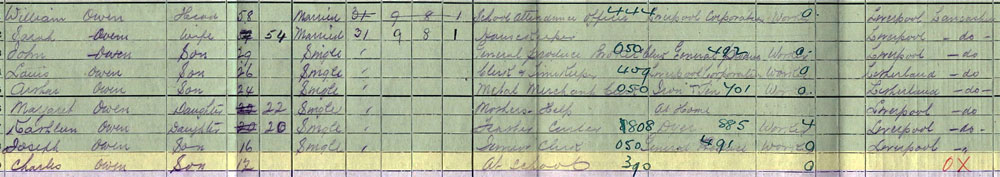 William Owen Head 58 Married 31 9 8 1 School Attendance Officer 444 Liverpool Corporation Worker 0 Liverpool Lancashire
Sarah Owen Wife 54 Married 31 9 8 1 Housekeeper Liverpool - do -
John Owen Son 29 Single General Produce Broker Clerk 050 General 492 Worker 0 Liverpool - do
Louis Owen Son 26 Single Clerk & Timekeeper 409 Liverpool Corporation Worker 0 Litherland - do
Owen Son 24 Single Metal Merchant 050 Iron 401 Worker 0 Litherland - do -
Margaret Owen Daughter 22 Single Mothers Help At Home Liverpool - do -
Kathleen Owen Daughter 20 Single 1808 Over 885 Worker 4 Liverpool - do -
Joseph Owen Son 16 Single Clerk 050 General 491 Worker 0 Liverpool
Charles Owen Son 12 At School 390 0 OX